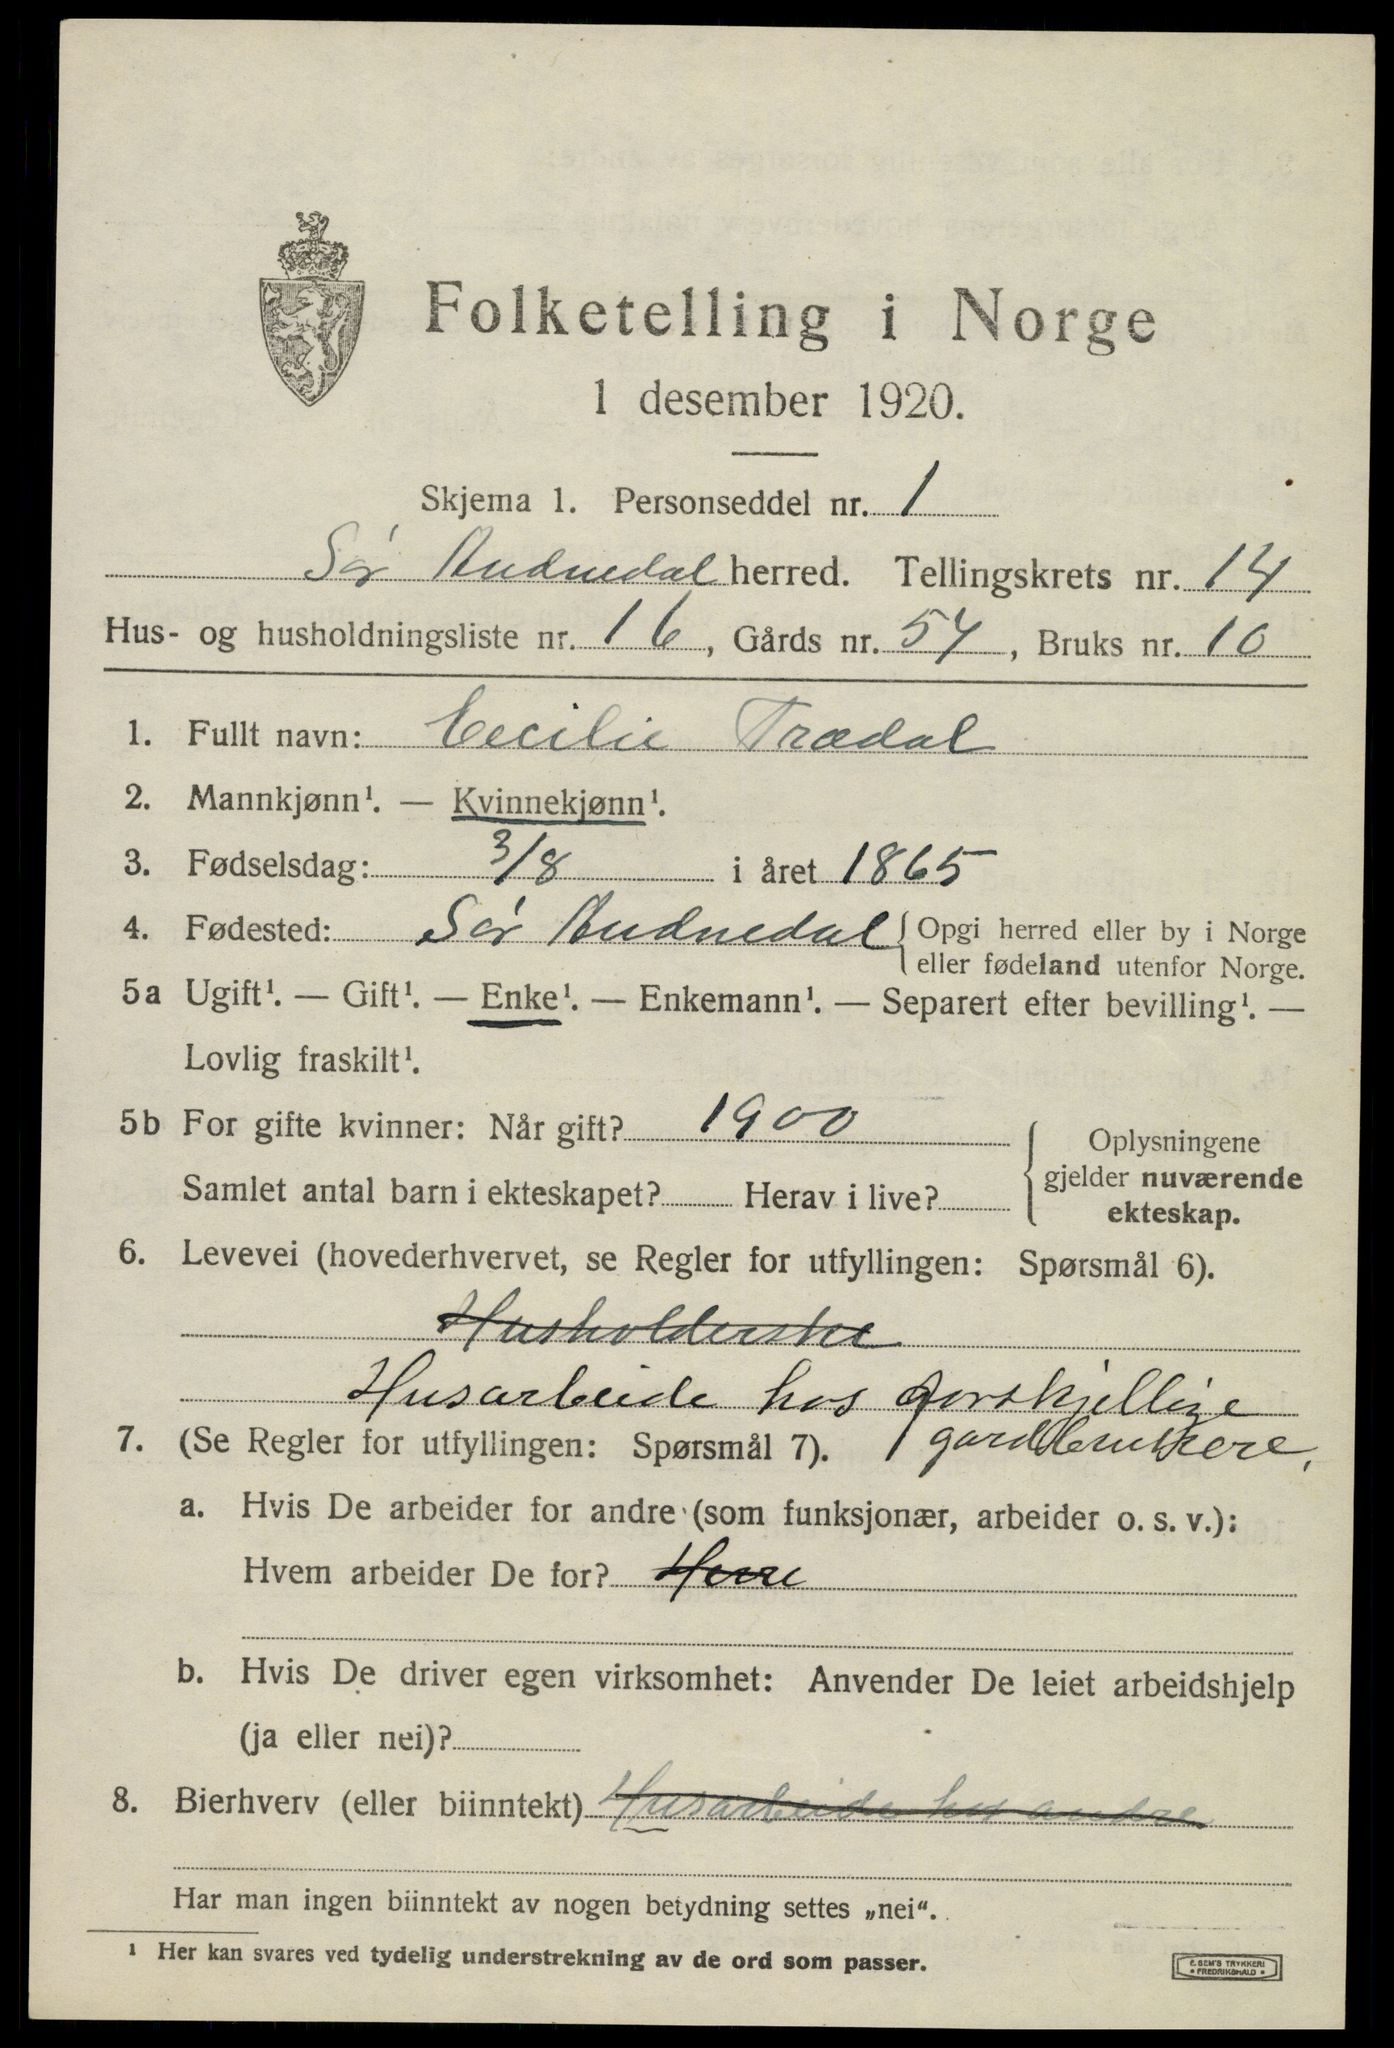 Folketelling i Norge
1 desember 1920.
Skjema 1. Personseddel nr. 1
Sør Audnedal herred. Tellingskrets nr. 14
Hus- og husholdningsliste nr. 16, Gårds nr. 54, Bruks nr. 10
1. Fullt navn: Cecilie Trædal
2. Mannkjønn¹. — Kvinnekjønn¹.
3. Fødselsdag: 3/8 i året 1865
4. Fødested: Sør Audnedal { Opgi herred eller by i Norge
eller fødeland utenfor Norge.
5a Ugift¹. — Gift¹. — Enke¹. — Enkemann¹. — Separert efter bevilling¹. —
Lovlig fraskilt¹.
5b For gifte kvinner: Når gift? 1900
Samlet antal barn i ekteskapet? Herav i live?
Oplysningene
gjelder nuværende
ekteskap.
6. Levevei (hovederhvervet, se Regler for utfyllingen: Spørsmål 6).
Husholderske
Husarbeide hos forskjellige
gardbrukere,
7. (Se Regler for utfyllingen: Spørsmål 7).
a. Hvis De arbeider for andre (som funksjonær, arbeider o. s. v.):
Hvem arbeider De for?
b. Hvis De driver egen virksomhet: Anvender De leiet arbeidshjelp
(ja eller nei)?
8. Bierhverv (eller biinntekt) Husarbeide hos andre
Har man ingen biinntekt av nogen betydning settes „nei“.
¹ Her kan svares ved tydelig understrekning av de ord som passer.
E. SEM'S TRYKKERI
• FREDRIKSHALD •